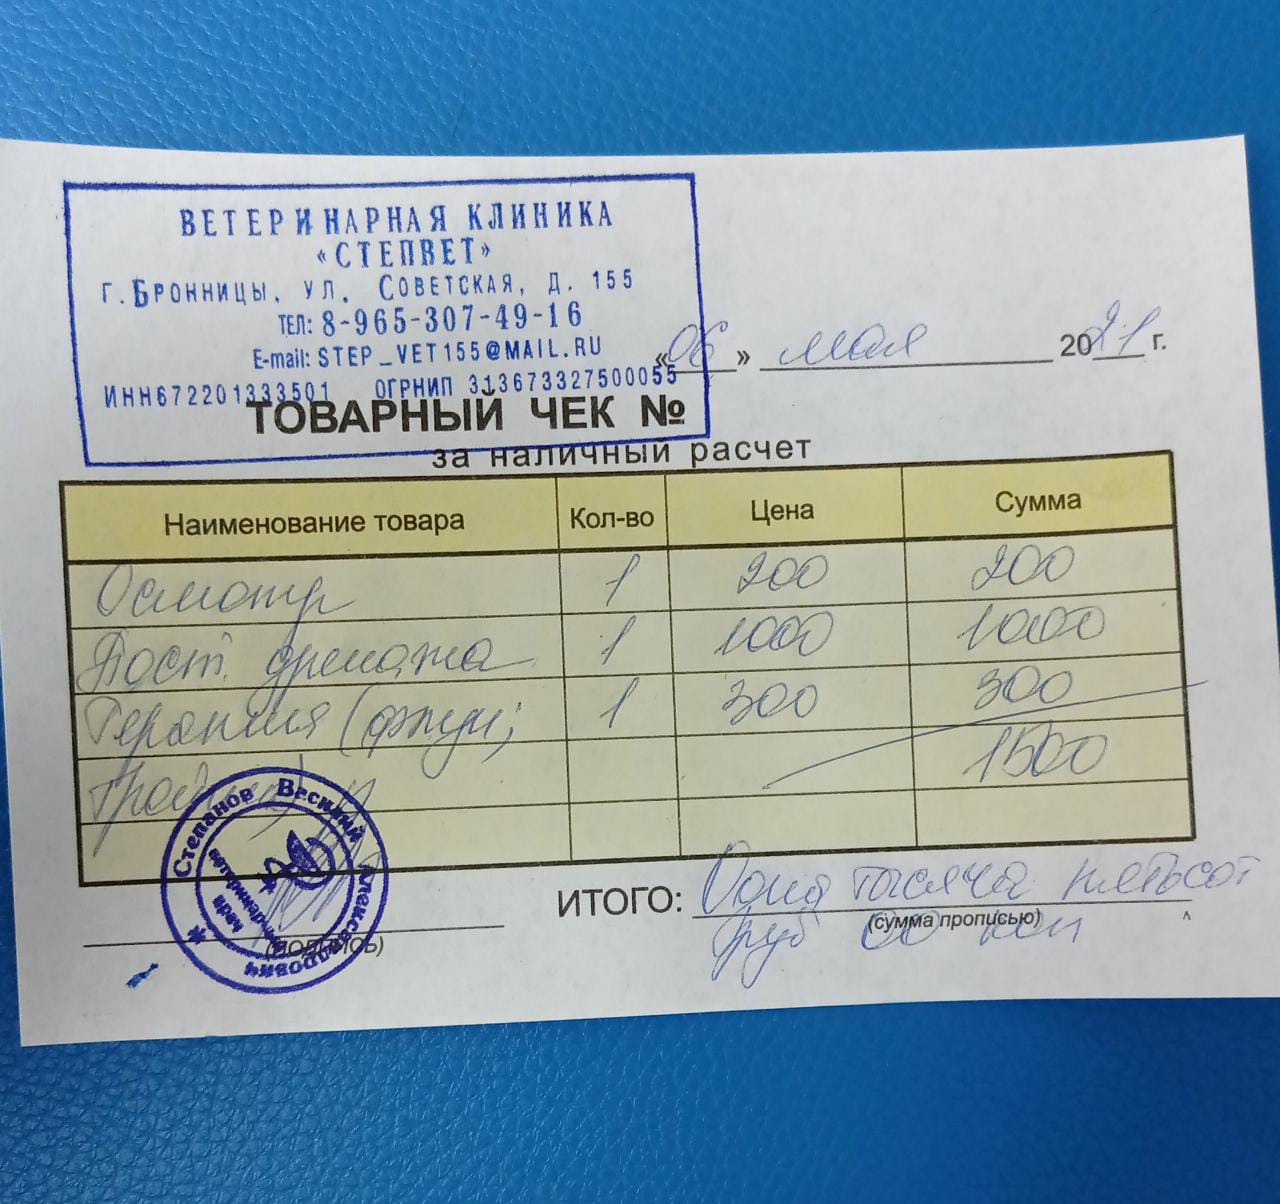 ВЕТЕРИНАРНАЯ КЛИНИКА
«СТЕПВЕТ»
Г. БРОННИЦЫ, УЛ. СОВЕТСКАЯ, Д. 155
ТЕЛ: 8-965-307-49-16
E-mail: STEP_VET155@MAIL.RU
ИНН672201333501 ОГРНИП 313673327500055
«06» мая 2021 г.
ТОВАРНЫЙ ЧЕК №
за наличный расчет
Наименование товара Кол-во Цена Сумма
Осмотр 1 200 200
Пост. дренажа 1 1000 1000
Терапия ( 1 300 300
1500
ИТОГО: Одна тысяча пятьсот
(сумма прописью)
руб 00 коп
(подпись)
Степанов Василий Александрович